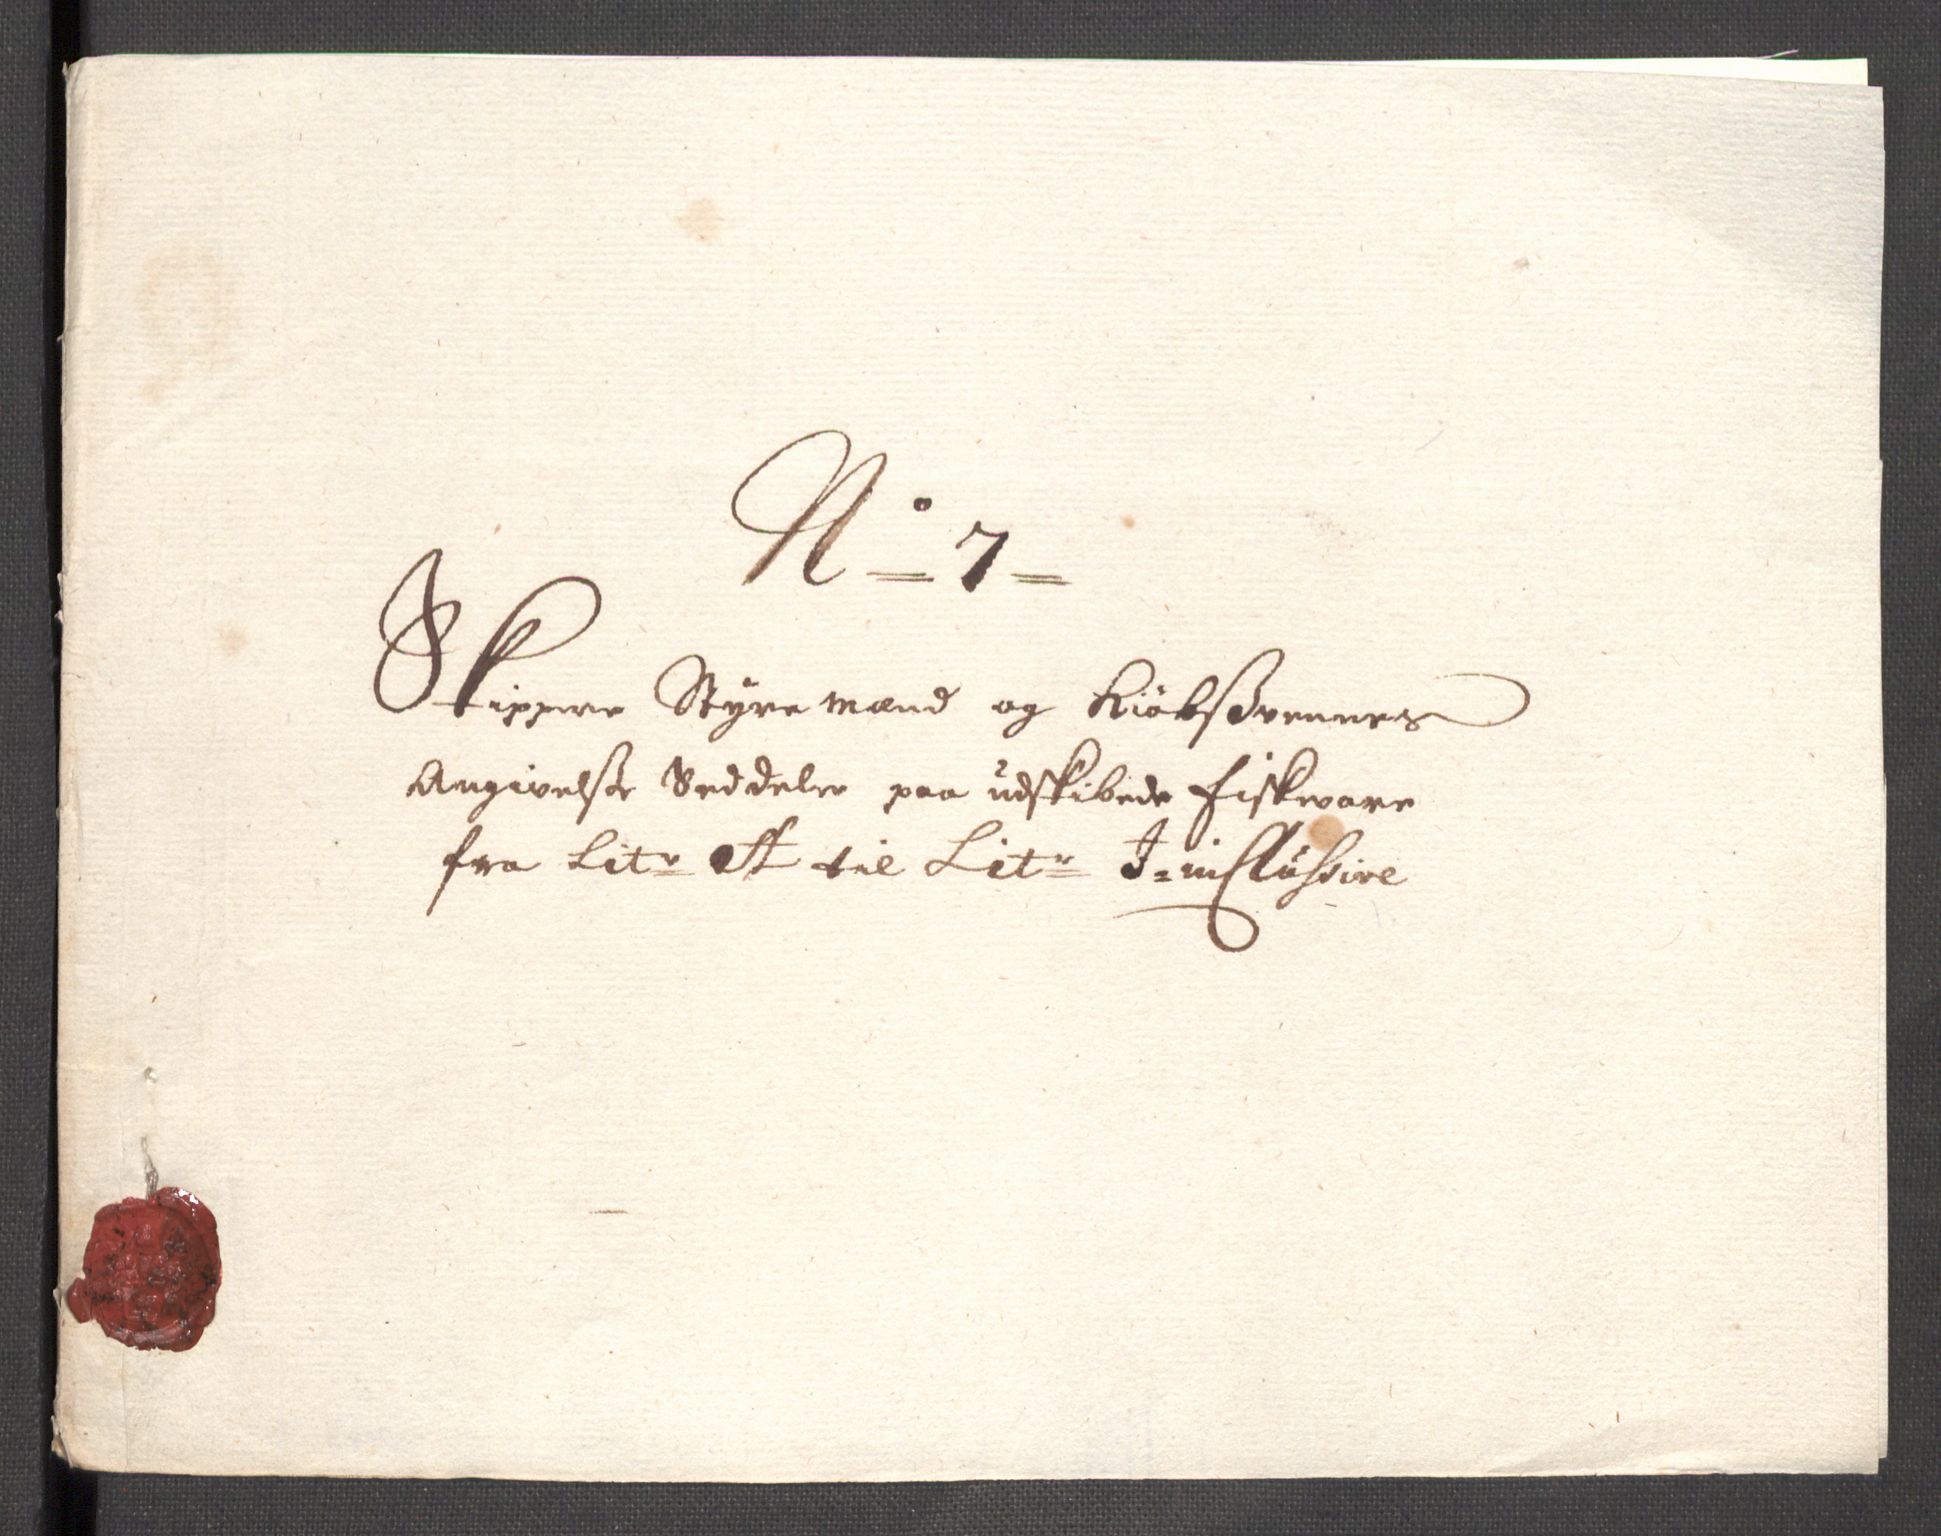 No 7
Skippere Styremænd og Kiöbsvennes
Angivelse Seddeler paa udskibede fiskevare
fra Litr A til Litr J. inclussive